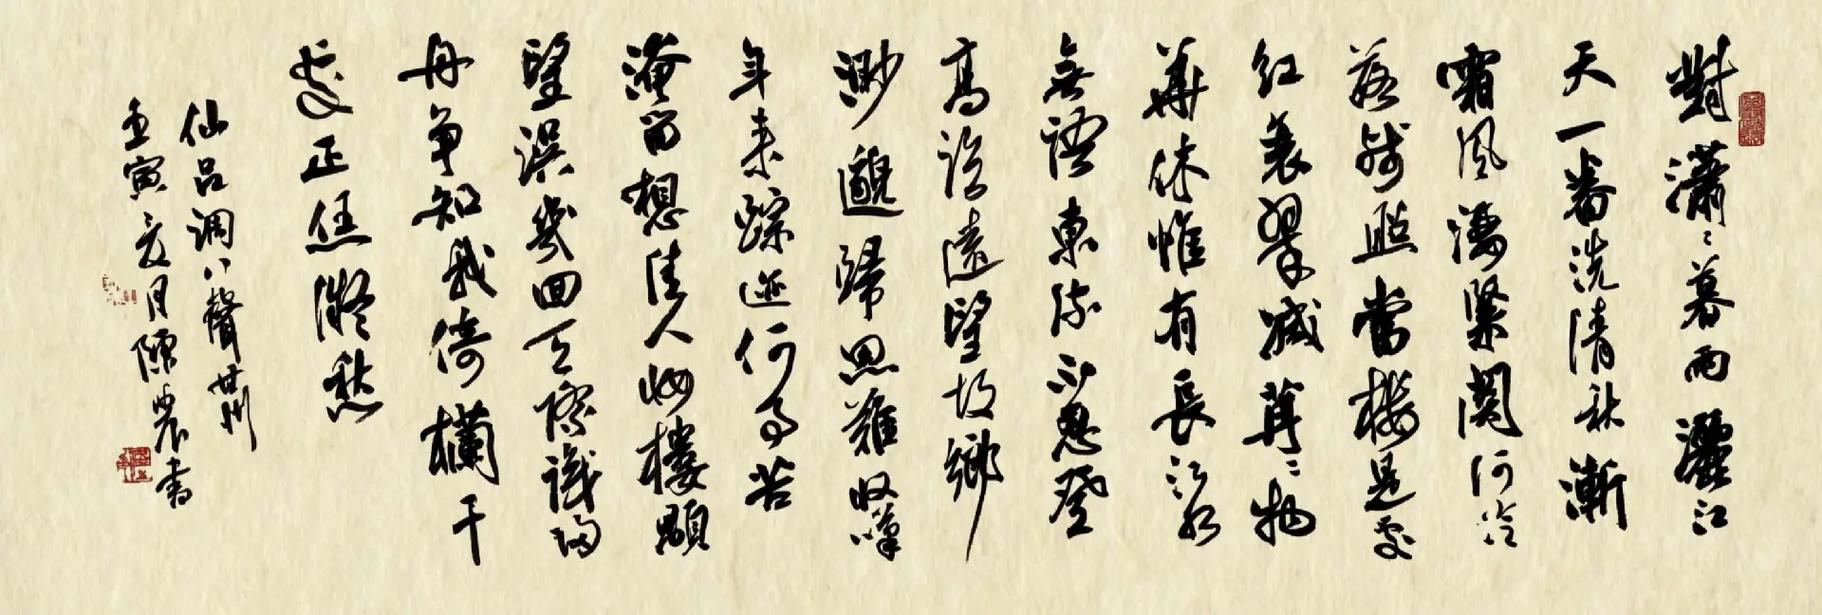 對瀟〻暮雨灑江
天一番洗清秋漸
霜風凄緊關河冷
落殘照當樓是處
紅衰翠減苒〻物
華休惟有長江水
無語東流不忍登
高臨遠望故鄉
渺邈歸思難收嘆
年來踪迹何事苦
淹留想佳人妝樓顒
望誤幾回天際識歸
舟爭知我倚欄干
處正恁凝愁
仙呂調八聲甘州
壬寅 月陳 書